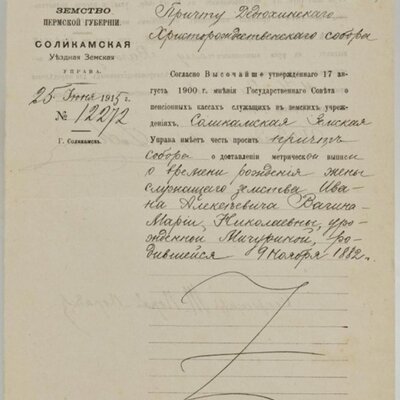 ЗЕМСТВО
ПЕРМСКОЙ ГУБЕРНІИ.
СОЛИКАМСКАЯ
Уѣздная Земская
УПРАВА.
25 Іюня 1915 г.
№ 12272
Г. Соликамскъ.
Причту Дедюхинскаго
Христорождественскаго собора
Согласно Высочайше утвержденнаго 17 ав-
густъ 1900 г. мнѣнія Государственнаго Совѣта о
пенсіонныхъ кассахъ служащихъ въ земскихъ учреж-
деніяхъ, Соликамская Земская
Управа имѣетъ честь просить причтъ
собора о доставленіи метрической выписи
о времени рожденія жены
служащаго земства Ива-
на Алексѣевича Вагина
Маріи Николаевны, уро-
жденной Мичуриной, ро-
дившейся 9 ноября 1882 г.